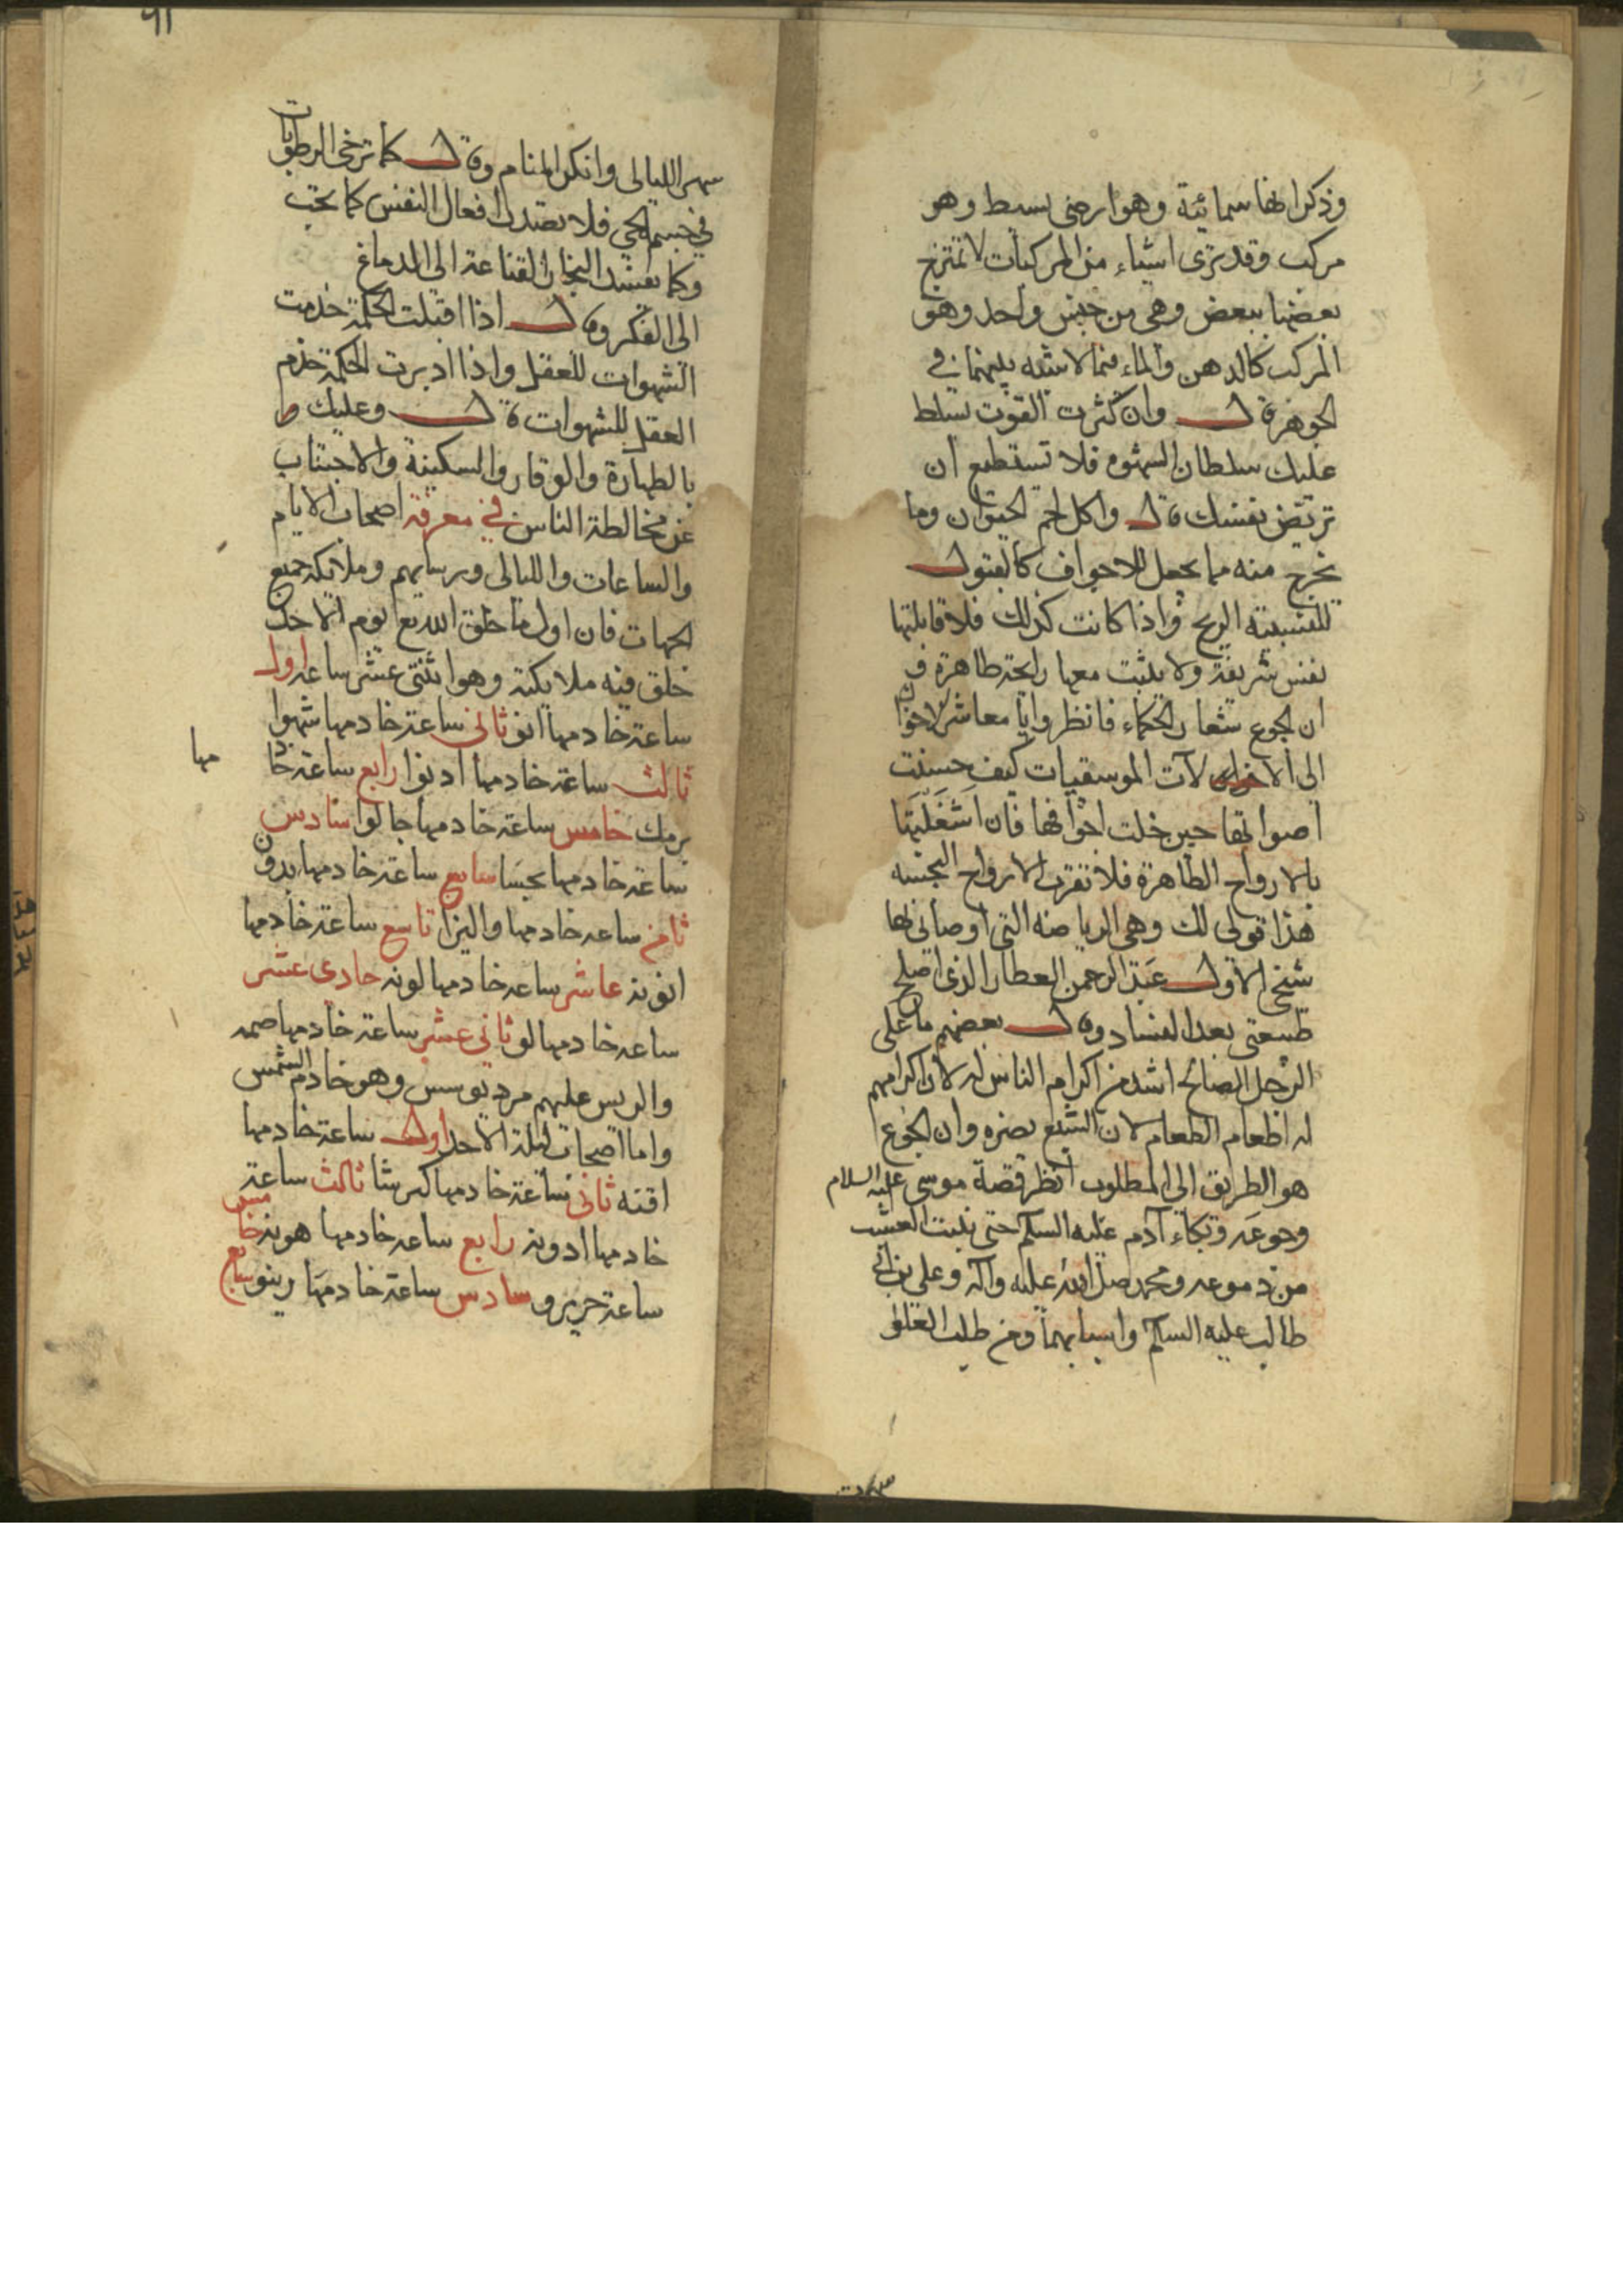 وذكر انها سمائية وهو ارضى بسيط وهو
مركب وقد ترى اشياء من المركبات لا تمتزج
بعضها ببعض وهى من جنس واحد وهو
المركب كالدهن والماء فما لا شبه بينهما فى
الجوهر قال وان كثرت القوت تسلط
عليك سلطان الشهوه فلا تستطيع ان
تريض نفسك قال واكل لحم الحيوان وما
يخرج منه مما يجعل للاجواف كالبقول
الريح واذا كانت كذلك فلا قابلتها
نفس شريفة ولا يثبت معها رايحة طاهرة
ان الجوع شعار الحكماء فانظروا يا معاشر الاخوان
الى الآت الموسقيات كيف حسنت
اصواتها حين خلت اجوافها فان اشغلتها
بالارواح الطاهرة فلا تقرب الارواح النجسه
هذا قولى لك وهى الرياضه التى اوصانى بها
شيخى الاول عبد الرحمن العطار الذى اصلح
طبيعتى بعد الفساد وقال بعضهم ما على
الرجل الصالح اشد من اكرام الناس له لان اكرامهم
له اطعام الطعام لان الشبع يضره وان الجوع
هو الطريق الى المطلوب انظر قصة موسى عليه السلام
وجوعه وبكاء آدم عليه السلم حتى نبت العشب
من دموعه ومحمد صلى الله عليه وآله وعلى بن ابى
طالب عليه السلم واسبابهما ومن طلب العلى
سهر الليالى وانكر المنام وقال كما ترخى الرطوبات
فى جسم الحى فلا يصدر افعال النفس كما يجب
وكما يفسد البخار القناعة الى الدماغ
الى الفكر وقال اذا اقبلت الحكمة خدمت
الشهوات للعقل واذا ادبرت الحكمة خدم
العقل للشهوات قال وعليك
بالطهارة والوقار والسكينة والاجتناب
عن مخالطة الناس فى معرفة اصحاب الايام
والساعات والليالى وريسايهم وملايكة جميع
الجهات فان اول ما خلق الله تع يوم الاحد
خلق فيه ملايكة وهو اثنتى عشر ساعه اول
ساعة خادمها انو ثانى ساعة خادمها شهوا
ثالث ساعة خادمها ادنوا رابع ساعة خا
مها
برمك خامس ساعة خادمها جالوا سادس
ساعة خادمها بحسا سابع ساعة خادمها بدون
ثامن ساعه خادمها واليزا تاسع ساعة خادمها
انونه عاشر ساعه خادمها لونه حادى عشر
ساعه خادمها لو ثانى عشر ساعة خادمها صمه
والريس عليهم مرديوسس وهو خادم الشمس
واما اصحاب ليلة الاحد اول ساعة خادمها
اقنه ثانى ساعة خادمها كبرشا ثالث ساعة
خادمها ادونه رابع ساعه خادمها هونه خامس
ساعة حريرو سادس ساعة خادمها رينو سابع